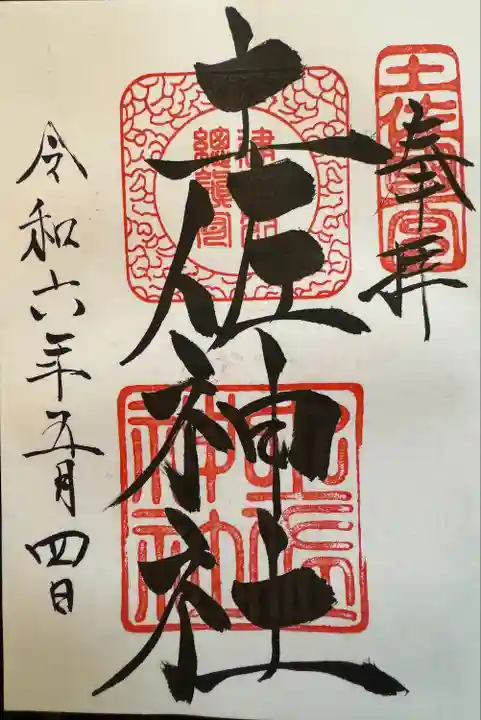 奉拝
土佐國一宮
土佐神社
土佐神社
令和六年五月四日